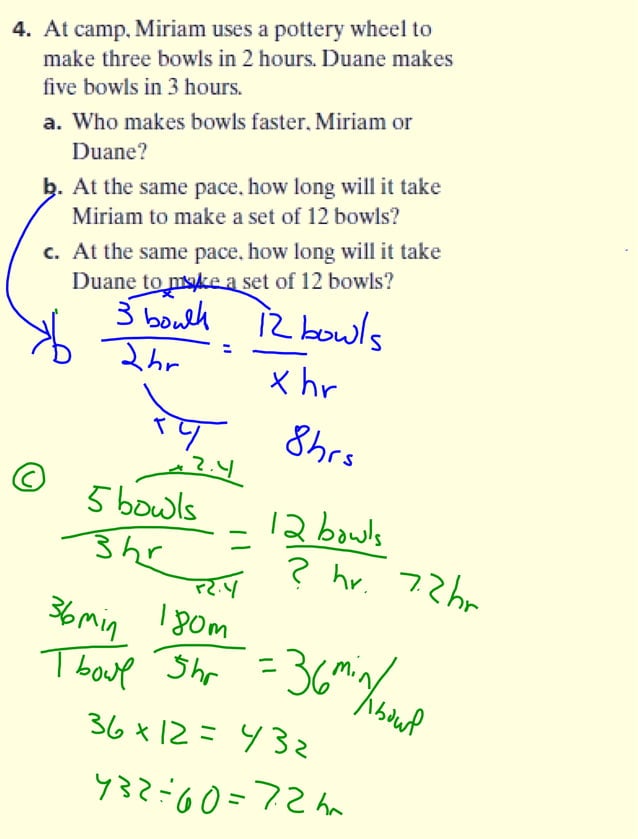 4. At camp, Miriam uses a pottery wheel to
make three bowls in 2 hours. Duane makes
five bowls in 3 hours.
a. Who makes bowls faster, Miriam or
Duane?
b. At the same pace, how long will it take
Miriam to make a set of 12 bowls?
c. At the same pace, how long will it take
Duane to make a set of 12 bowls?
b 3 = 12 bowls
2 hr x hr
8hrs
c × 2.4
5 bowls = 12 bowls
3 hr ? hr. 7.2 hr
×2.4
36 min 180m
1 bowl 5hr = 36 min/1bowl
36 × 12 = 432
432 ÷ 60 = 7.2 hr